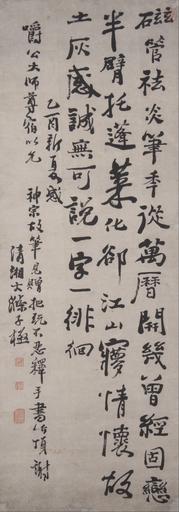 磁管祛炎筆年從萬曆開幾曾經固戀
半臂托蓬萊化卻江山寢情懷故
土灰感誠無可說一字一徘徊
乙酉新夏感
神宗故筆見贈把玩不忍釋手書作頌謝
嚼公大師尊伯以允
清湘大滌子極